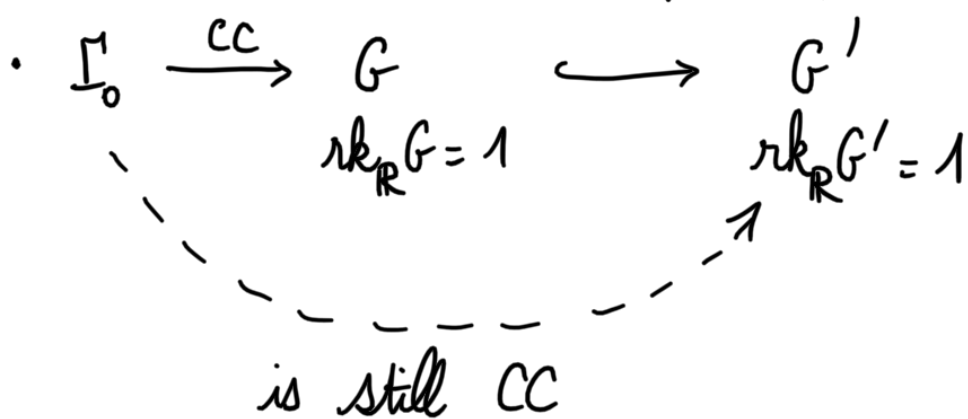 · Γ₀ CC→ G ↪ G′
rk_ℝ G = 1 rk_ℝ G′ = 1
is still CC